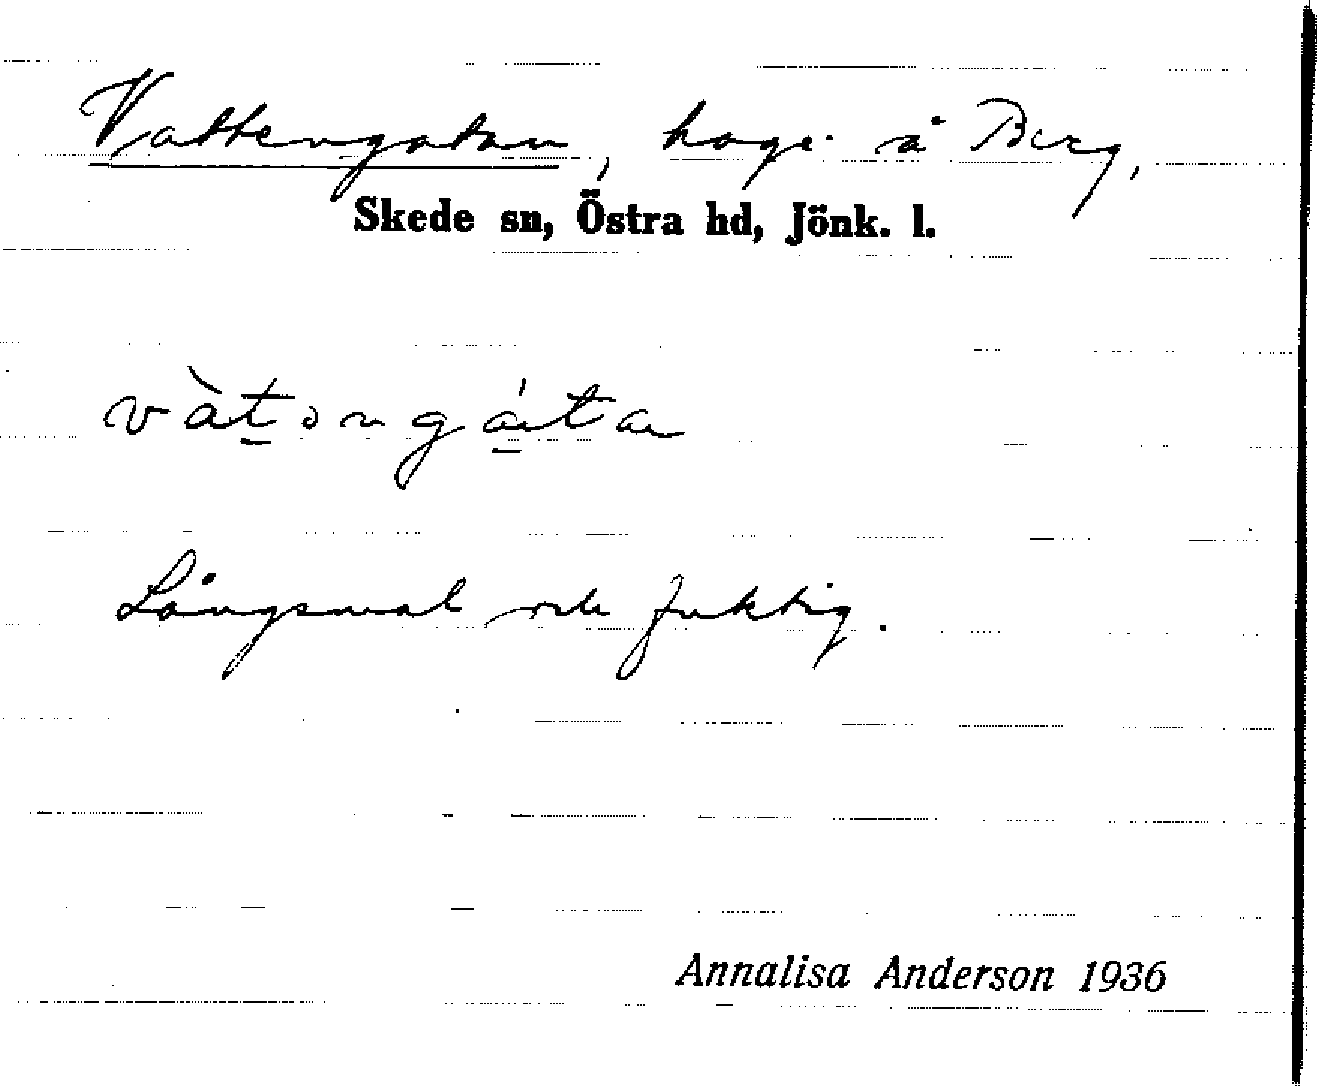 Vattengatan, hage å Berg,
Skede sn, Östra hd, Jönk. l.
vàtəngátan
Långsmal och fuktig.
Annalisa Anderson 1936